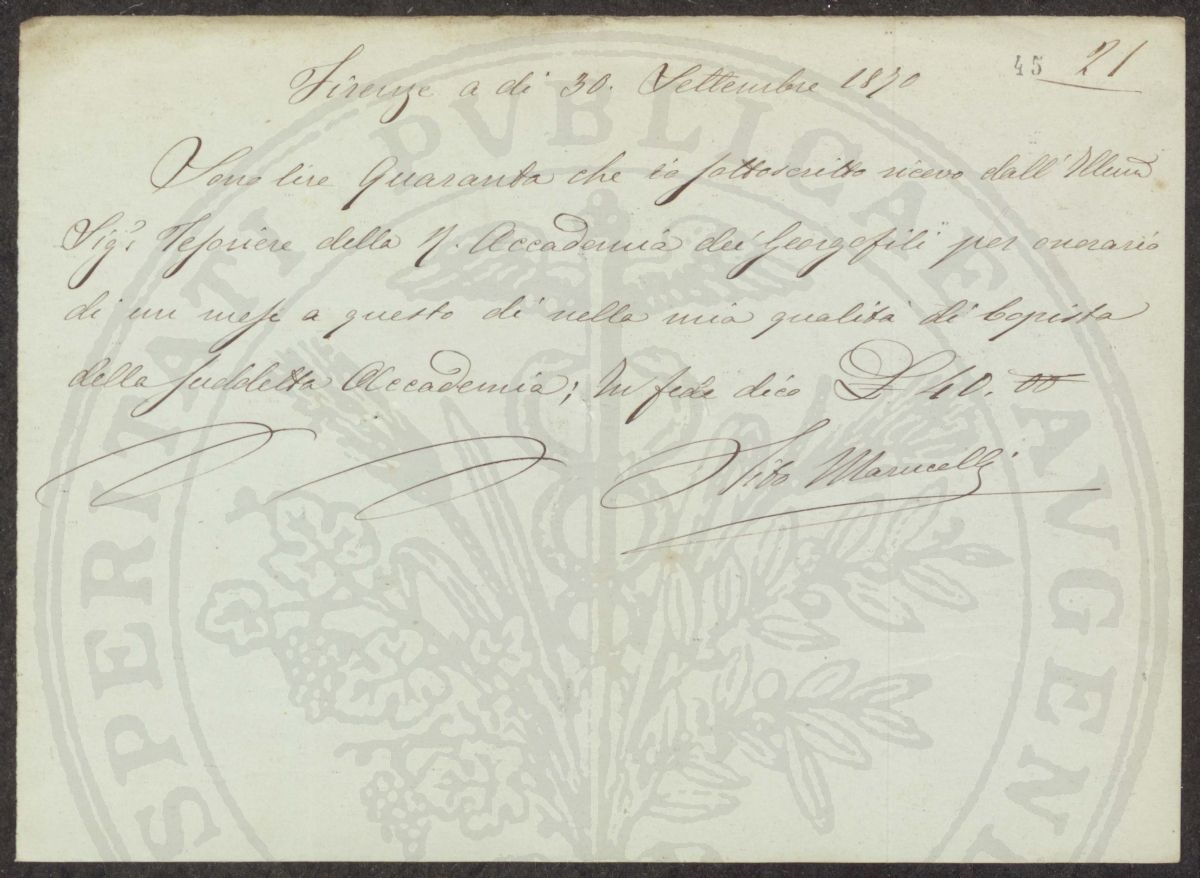 45 21
Firenze a di 30. Settembre 1870
Sono lire Quaranta che io sottoscritto ricevo dall'Illmo
Sigr Tesoriere della R. Accademia dei Georgofili per onorario
di un mese a questo di nella mia qualità di Copista
della suddetta Accademia; In fede dico £ 40. 00
Tito Marucelli
PROSPERITATI PVBLICAE AVGENDAE